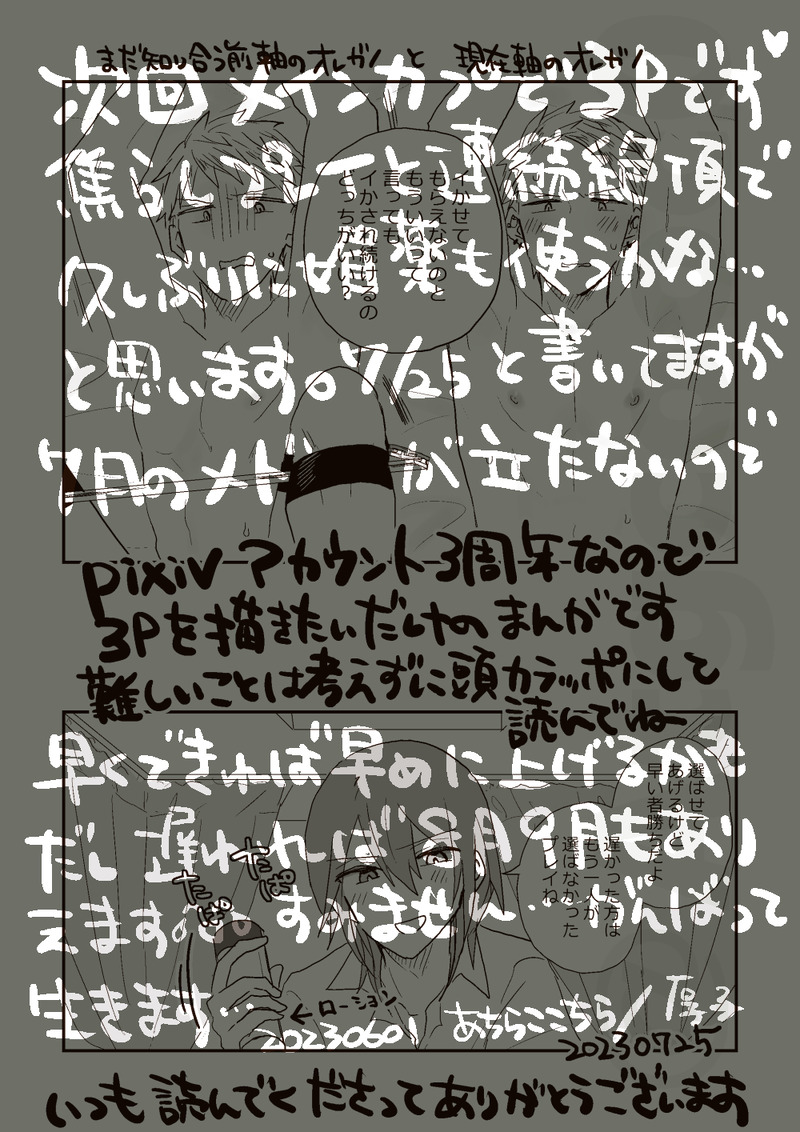 まだ知り合う前軸のオレガノと 現在軸のオレガノ
次回メインカプと3Pです♥
焦らしプレイと連続絶頂で
久しぶりに媚薬も使うかな…
と思います。7/25と書いてますが
7月のメドが立たないので
イかせて
もらえないのと
もういいって
言っても
イかされ続けるの
どっちがいい？
pixivアカウント3周年なので
3Pを描きたいだけのまんがです
難しいことは考えずに頭カラッポにして
読んでねー
早くできれば早めに上げるかも
だし遅れれば8月9月もあり
えます。すみません…がんばって
生きます…
選ばせて
あげるけど
早い者勝ちだよ
遅かった方は
もう一人が
選ばなかった
プレイね
たぱ
たぱ
←ローション
20230601 あちらここちら/
20230725
いつも読んでくださってありがとうございます